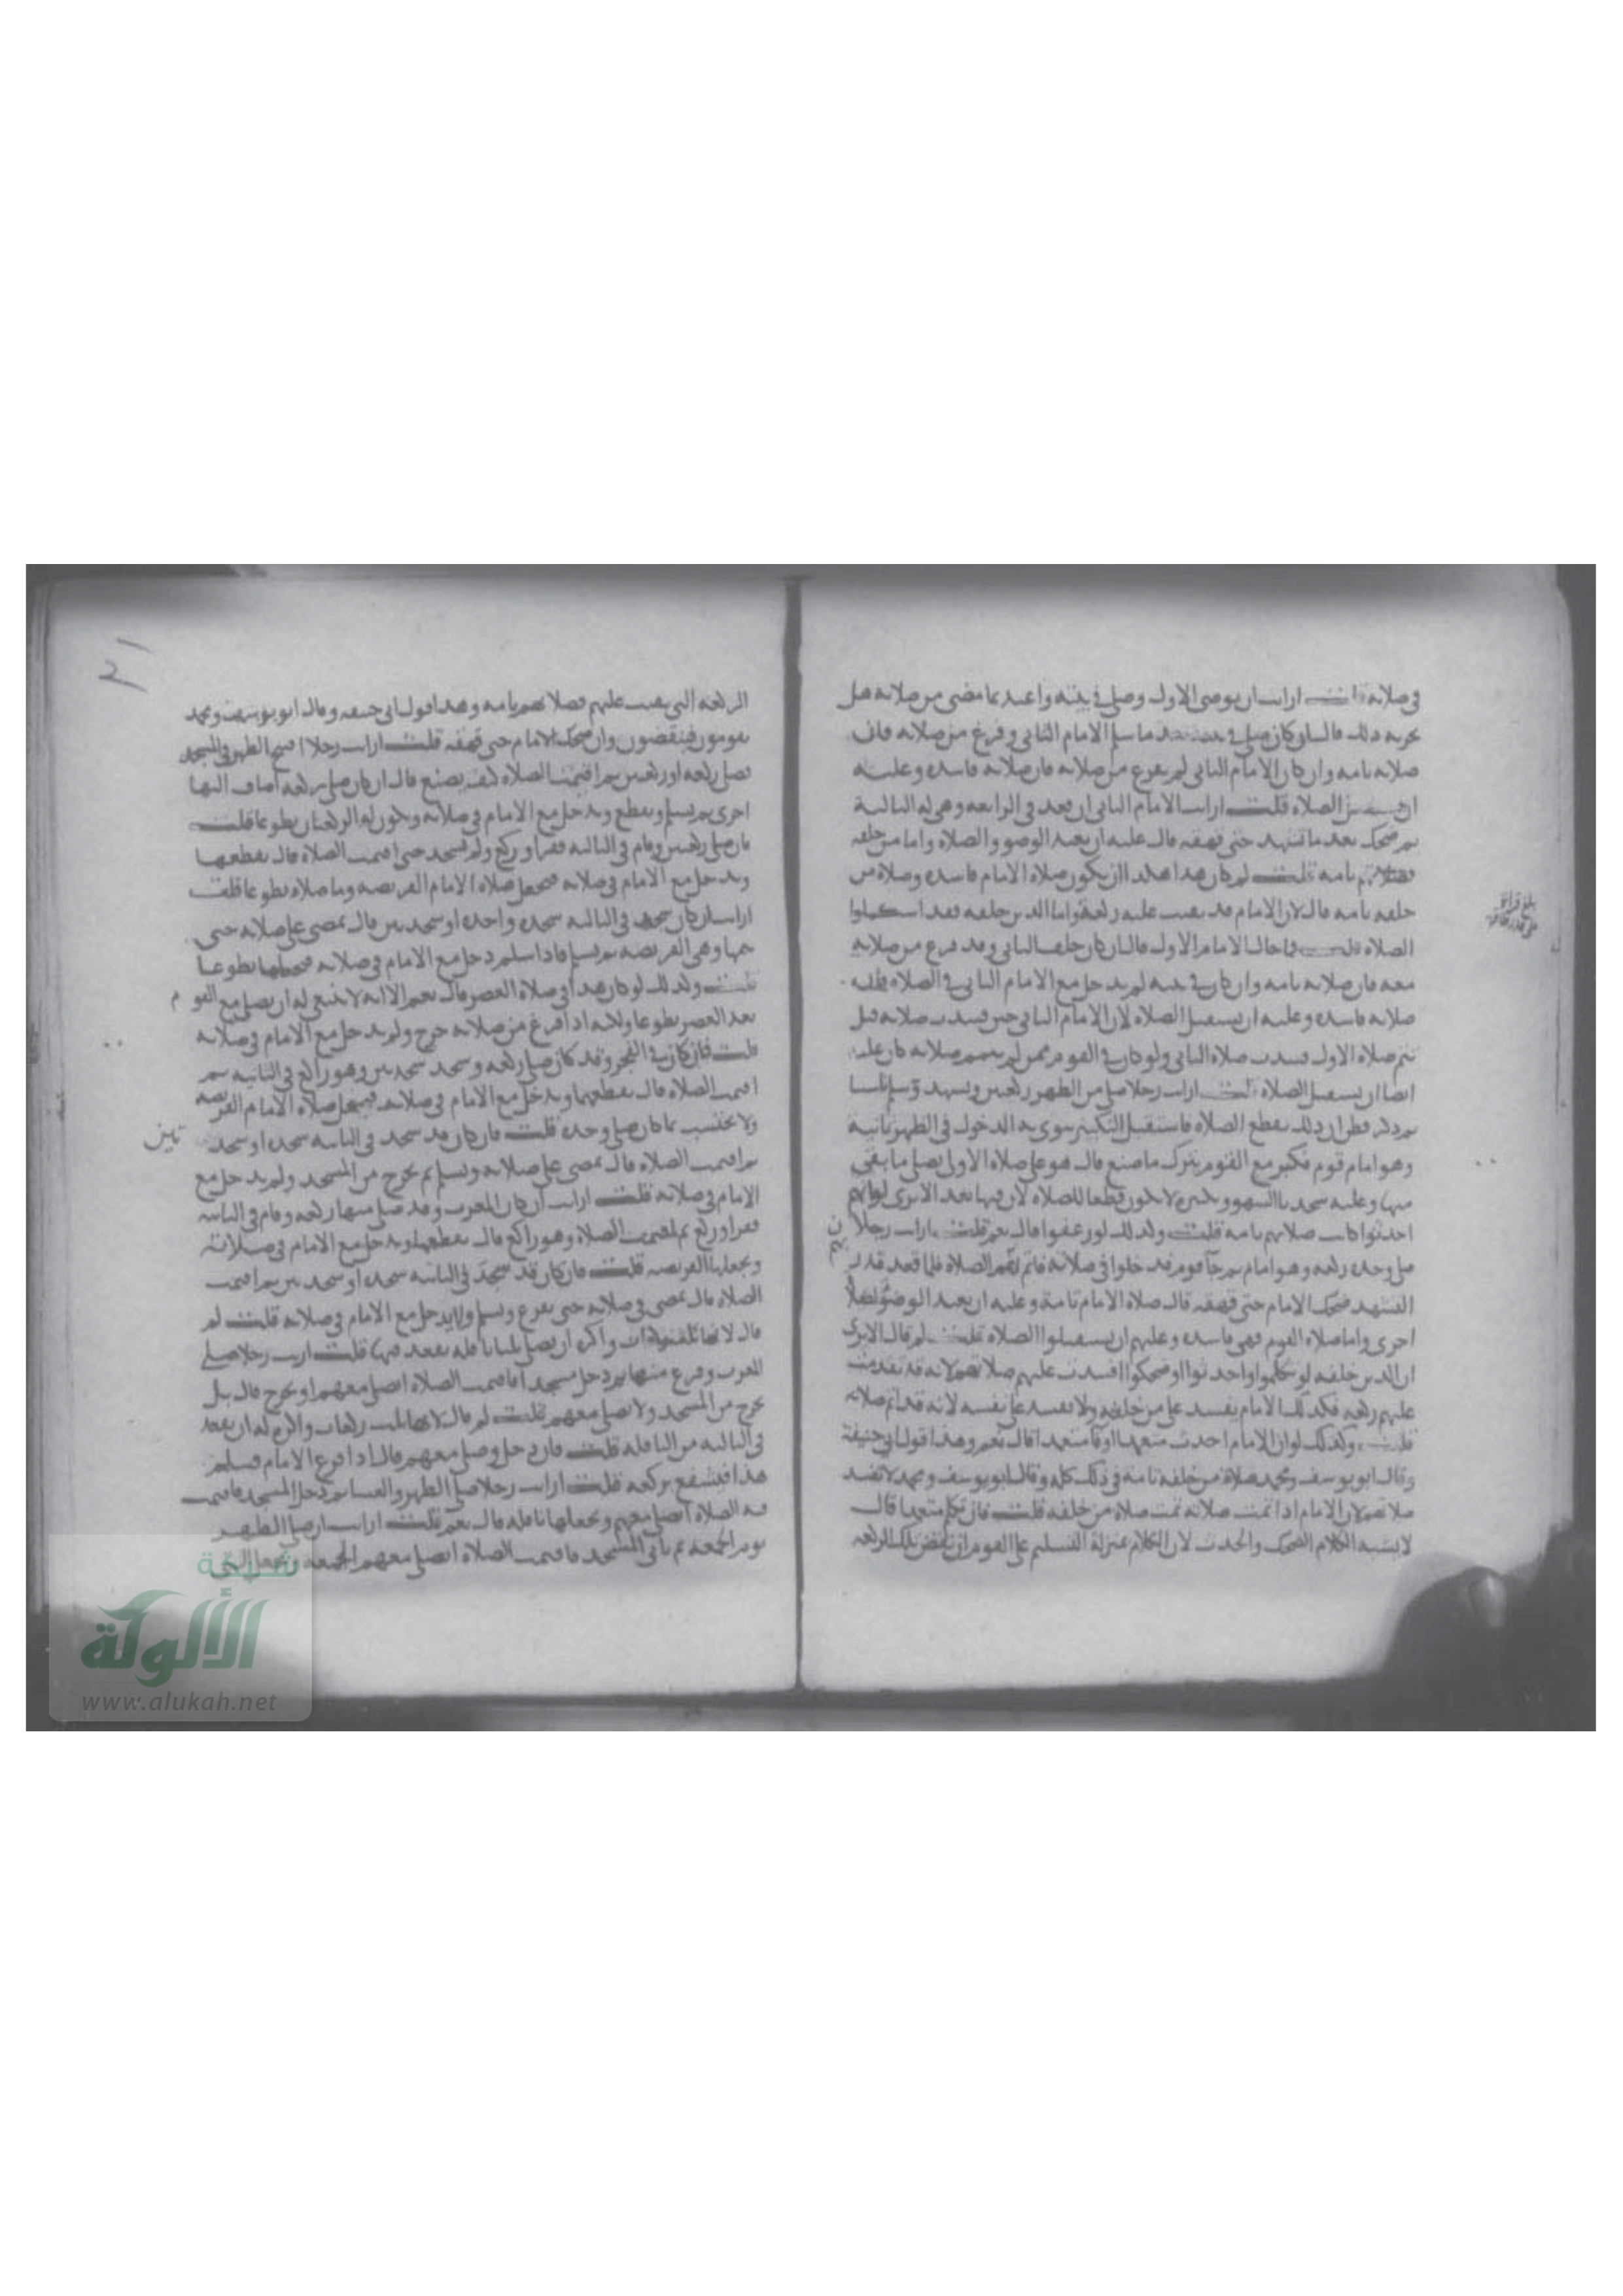 في صلاته قلت ارايت ان توضى الاول وصلى في بيته واعتد بما مضى من صلاته هل
يجزيه ذلك قال ان كان صلى في بيته بعد ما سلم الامام الثاني وفرغ من صلاته فان
صلاته تامه وان كان الامام الثاني لم يفرغ من صلاته فان صلاته فاسده وعليه
ان يستقبل الصلاه قلت ارايت الامام الثاني ان قعد في الرابعه وهي له الثالثة
ثم ضحك بعد ما تشهد حتى قهقه قال عليه ان يعيد الوضو والصلاه واما من خلفه
فصلاتهم تامه قلت لم كان هذا هكذا ان يكون صلاة الامام فاسده وصلاة من
خلفه تامه قال لان الامام قد بقيت عليه ركعة واما الذين خلفه فقد استكملوا
الصلاه قلت فما حال الامام الاول قال ان كان خلف الثاني وقد فرغ من صلاته
معه فان صلاته تامه وان كان في بيته لم يدخل مع الامام الثاني في الصلاه فان
صلاته فاسده وعليه ان يستقبل الصلاه لان الامام الثاني حين فسدت صلاته قبل
تتم صلاة الاول فسدت صلاة الثاني ولو كان في القوم ممن لم يتمم صلاته كان عليه
ايضا ان يستقبل الصلاه قلت ارايت رجلا صلى من الظهر ركعتين وتشهد وسلم ناسيا
ثم ذكر فظن ان ذلك يقطع الصلاه فاستقبل التكبير ينوي به الدخول في الظهر ثانية
وهو امام قوم فكبر مع القوم يترك ما صنع قال هو على صلاة الاولى يصلي ما بقي
منها وعليه سجدتا السهو وتكبيره لا يكون قطعا للصلاه لانه فيها بعد الا ترى لو انهم
احدثوا كانت صلاتهم تامه قلت وكذلك لو رعفوا قال نعم قلت ارايت رجلا
صلى وحده ركعه وهو امام ثم جآ قوم فدخلوا في صلاته فاتم لهم الصلاه فلما قعد قدر
التشهد ضحك الامام حتى قهقه قال صلاة الامام تامة وعليه ان يعيد الوضؤ لصلاة
اخرى واما صلاة القوم فهي فاسده وعليهم ان يستقبلوا الصلاه قلت لم قال الا ترى
ان الذين خلفه لو تكلموا او احدثوا او ضحكوا افسدت عليهم صلاتهم لانه قد تقدمت
عليهم ركعه فكذلك الامام يفسد على من خلفه ولا يفسد على نفسه لانه قد اتم صلاته
قلت وكذلك لو ان الامام احدث متعمدا او قا متعمدا قال نعم وهذا قول ابي حنيفة
وقال ابو يوسف ومحمد صلاة من خلفه تامة في ذلك كله وقال ابو يوسف ومحمد لا تفسد
صلاتهم لان الامام اذا تمت صلاته تمت صلاة من خلفه قلت فان تكلم متعمدا قال
لا يشبه الكلام الضحك والحدث لان الكلام بمنزلة التسليم على القوم ان تقضى تلك الركعه
بلغ قراءة
الركعه التي بقيت عليهم فصلاتهم تامه وهذا قول ابي حنيفه وقال ابو يوسف ومحمد
يقومون فيقضون وان ضحك الامام حتى قهقه قلت ارايت رجلا افتتح الظهر في المسجد
فصلى ركعه او ركعتين ثم اقيمت الصلاه كيف يصنع قال ان كان صلى ركعه اضاف اليها
اخرى ثم يسلم ويقطع ويدخل مع الامام في صلاته وتكون له الركعتان تطوعا قلت
فان صلى ركعتين وقام في الثالثه فقرا وركع ولم يسجد حتى اقيمت الصلاه قال يقطعها
ويدخل مع الامام في صلاته فتجعل صلاة الامام الفريضه وما صلاه تطوعا قلت
ارايت ان كان سجد في الثالثه سجده واحده او سجدتين قال يمضي على صلاته حتى
يتمها وهي الفريضه ثم يسلم فاذا سلم دخل مع الامام في صلاته فيجعلها تطوعا
قلت وكذلك لو كان هذا في صلاة العصر قال نعم الا انه لا ينبغي له ان يصلي مع القوم
بعد العصر تطوعا ولكنه اذا فرغ من صلاته خرج ولم يدخل مع الامام في صلاته
قلت فان كان في الفجر وقد كان صلى ركعه وسجد سجدتين وهو راكع في الثانيه ثم
اقيمت الصلاه قال يقطعها ويدخل مع الامام في صلاته فيجعل صلاة الامام الفريضه
ولا يحتسب بما كان صلى وحده قلت فان كان قد سجد في الثانيه سجده او سجد تين
ثم اقيمت الصلاه قال يمضي على صلاته ويسلم ثم يخرج من المسجد ولم يدخل مع
الامام في صلاته قلت ارايت ان كان المغرب وقد صلى منها ركعه وقام في الثانيه
فقرا وركع ثم اقيمت الصلاه وهو راكع قال يقطعها ويدخل مع الامام في صلاته
ويجعلها الفريضه قلت فان كان قد سجد في الثانيه سجده او سجدتين ثم اقيمت
الصلاه قال يمضي في صلاته حتى يفرغ ويسلم ولا يدخل مع الامام في صلاته قلت لم
قال لانها ثلث ركعات واكره ان يصلي ثلثا نافله يقعد فيها قلت ارايت رجلا صلى
المغرب وفرغ منها ثم دخل مسجدا فاقيمت الصلاه ايصلي معهم او يخرج قال بل
يخرج من المسجد ولا يصلي معهم قلت لم قال لانها ثلث ركعات واكره له ان يقعد
في الثالثه من النافله قلت فان دخل وصلى معهم قال اذا فرغ الامام فسلم
هذا فيشفع بركعه قلت ارايت رجلا صلى الظهر والعشا ثم دخل المسجد فاقيمت
فيه الصلاه ايصلي معهم ويجعلها نافله قال نعم قلت ارايت ان صلى الظهر
يوم الجمعه ثم ياتي المسجد فاقيمت الصلاه ايصلي معهم الجمعه ويجعل التي
شبكة
الألوكة
www.alukah.net